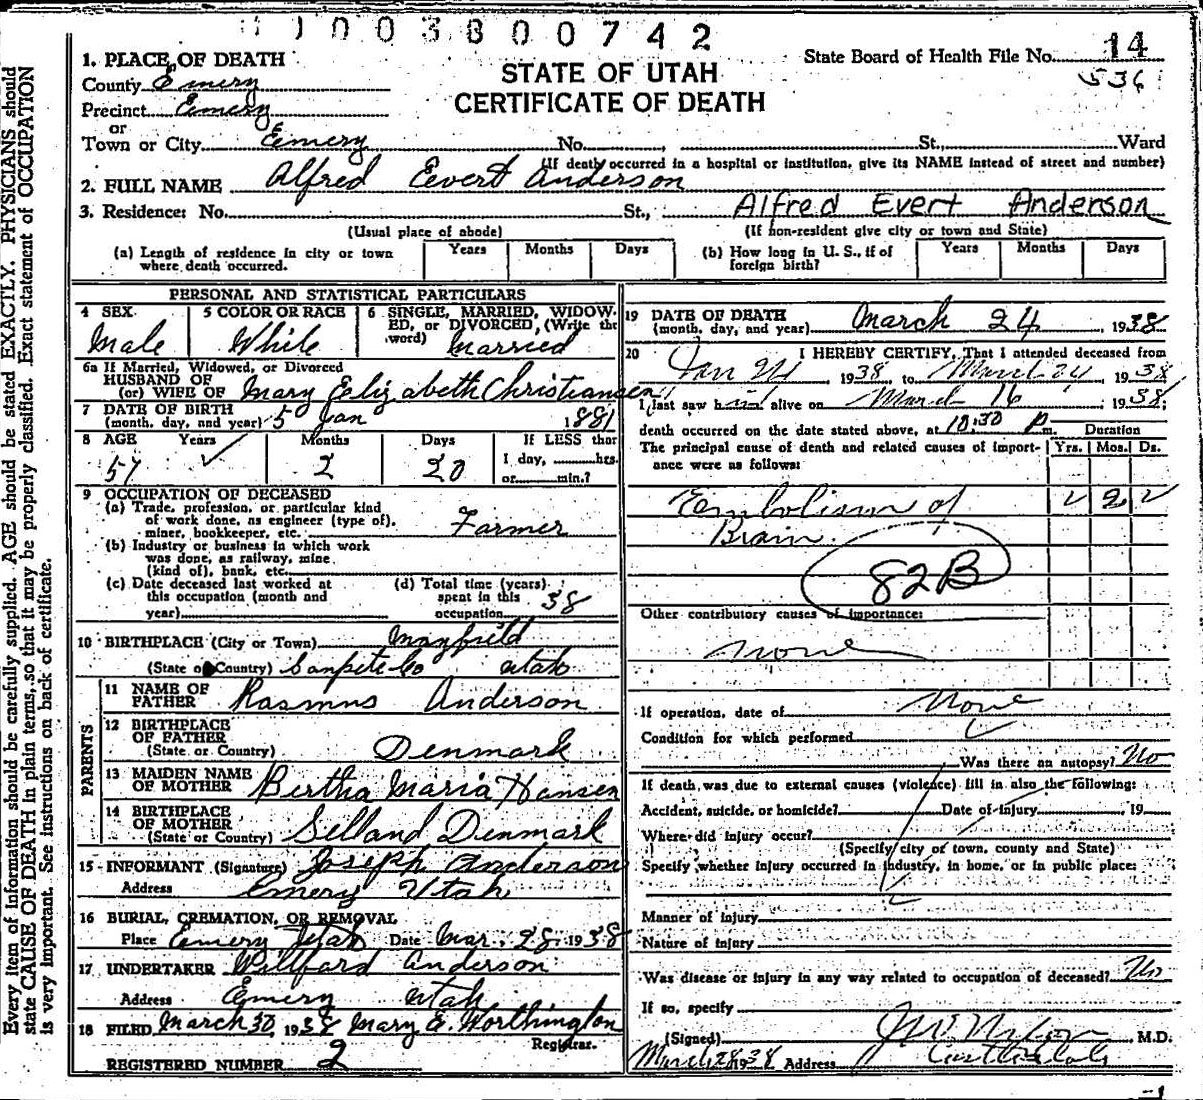 1 1 0 0 3 8 0 0 7 4 2
State Board of Health File No. 14
536
STATE OF UTAH
CERTIFICATE OF DEATH
1. PLACE OF DEATH
County Emery
Precinct Emery
or
Town or City Emery No. , St., Ward
(If death occurred in a hospital or institution, give its NAME instead of street and number)
2. FULL NAME Alfred Eevert Anderson
3. Residence: No. St., Alfred Evert Anderson
(Usual place of abode) (If non-resident give city or town and State)
(a) Length of residence in city or town where death occurred. Years Months Days
(b) How long in U. S., if of foreign birth? Years Months Days
PERSONAL AND STATISTICAL PARTICULARS
4 SEX
Male
5 COLOR OR RACE
White
6 SINGLE, MARRIED, WIDOW-
ED, or DIVORCED, (Write the
word) Married
6a If Married, Widowed, or Divorced
HUSBAND OF
(or) WIFE OF Mary Eelizabeth Christiansen
7 DATE OF BIRTH
(month, day, and year) 5 Jan 1881
8 AGE Years Months Days If LESS than
57 2 20 1 day, hrs.
or min.?
9 OCCUPATION OF DECEASED
(a) Trade, profession, or particular kind
of work done, as engineer (type of),
miner, bookkeeper, etc. Farmer
(b) Industry or business in which work
was done, as railway, mine
(kind of), bank, etc.
(c) Date deceased last worked at
this occupation (month and
year)
(d) Total time (years)
spent in this
occupation 38
10 BIRTHPLACE (City or Town) Mayfield
(State or Country) Sanpete Co Utah
PARENTS
11 NAME OF
FATHER Rasmus Anderson
12 BIRTHPLACE
OF FATHER
(State or Country) Denmark
13 MAIDEN NAME
OF MOTHER Bertha Maria Hansen
14 BIRTHPLACE
OF MOTHER
(State or Country) Selland Denmark
15 INFORMANT (Signature) Joseph Anderson
Address Emery Utah
16 BURIAL, CREMATION, OR REMOVAL
Place Emery Utah Date Mar. 28 1938
17 UNDERTAKER Willford Anderson
Address Emery Utah
18 FILED March 30, 1938 Mary E. Worthington
Registrar.
REGISTERED NUMBER 2
19 DATE OF DEATH
(month, day, and year) March 24, 1938
20 I HEREBY CERTIFY, That I attended deceased from
Jan 24, 1938 to March 24, 1938
I last saw him alive on March 16, 1938,
death occurred on the date stated above, at 10:30 P.m. Duration
The principal cause of death and related causes of import-
ance were as follows: Yrs. Mos. Ds.
Eembolism of 2
Brain
82B
Other contributory causes of importance:
none
If operation, date of None
Condition for which performed
Was there an autopsy? No
If death was due to external causes (violence) fill in also the following:
Accident, suicide, or homicide? Date of injury 19
Where did injury occur?
(Specify city or town, county and State)
Specify whether injury occurred in industry, in home, or in public place:
Manner of injury
Nature of injury
Was disease or injury in any way related to occupation of deceased? No
If so, specify
(Signed) M.D.
March 28 1938 Address
Every item of information should be carefully supplied. AGE should be stated EXACTLY. PHYSICIANS should
state CAUSE OF DEATH in plain terms, so that it may be properly classified. Exact statement of OCCUPATION
is very important. See instructions on back of certificate.